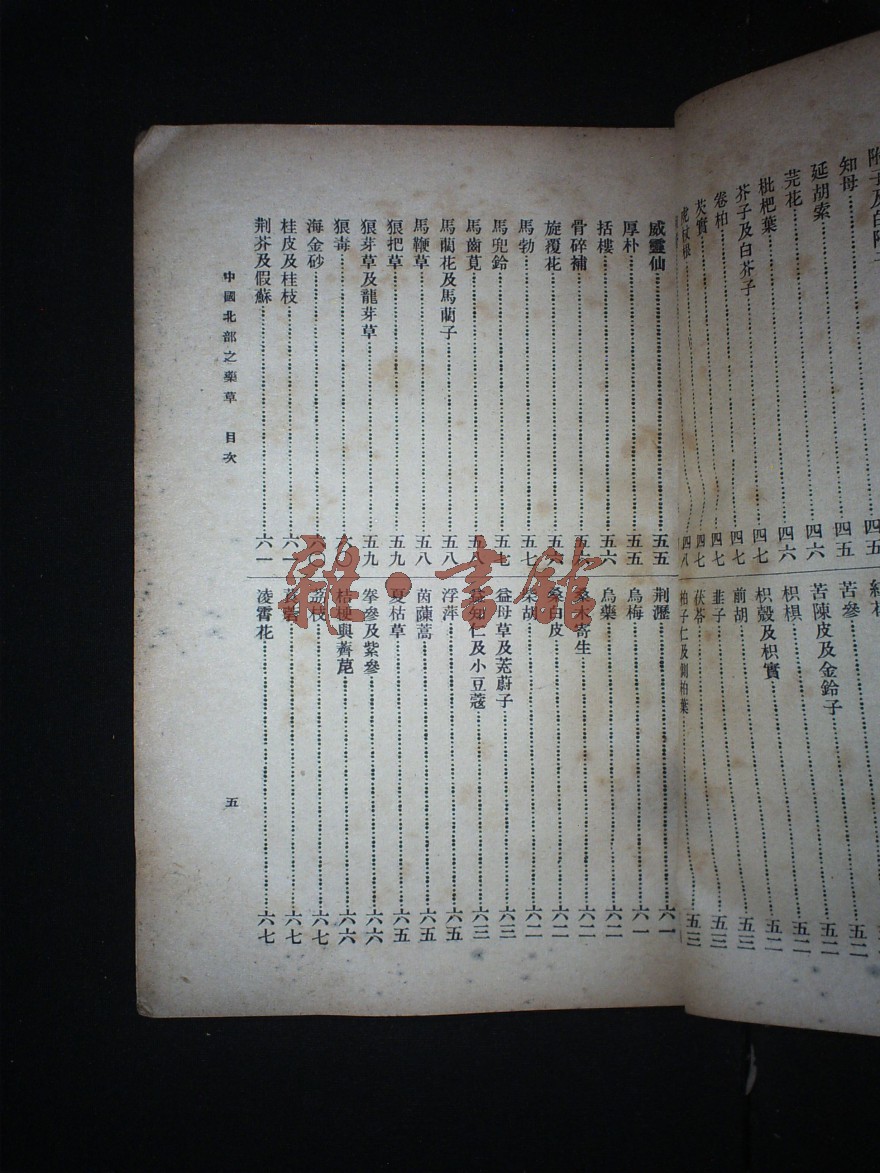 知母……四五
延胡索……四六
芫花……四六
枇杷葉……四七
芥子及白芥子……四七
卷柏……四七
芡實……四七
苦參……五二
苦陳皮及金鈴子……五二
枳椇……五二
枳殼及枳實……五二
前胡……五三
韭子……五三
茯苓……五三
柏子仁及側柏葉
威靈仙……五五
厚朴……五五
括樓……五六
骨碎補……五六
旋覆花……五六
馬勃……五七
馬兜鈴……五七
馬齒莧……五八
馬藺花及馬藺子……五八
馬鞭草……五八
狼把草……五九
狼芽草及龍芽草……五九
狼毒……六〇
海金砂……六〇
桂皮及桂枝……六一
荆芥及假蘇……六一
荆瀝……六一
烏梅……六一
烏藥……六二
桑木寄生……六二
桑白皮……六二
柴胡……六二
益母草及茺蔚子……六三
益知仁及小豆蔻……六三
浮萍……六五
茵蔯蒿……六五
夏枯草……六五
拳參及紫參……六六
桔梗與薺苨……六六
荔枝……六七
六七
凌霄花……六七
中國北部之藥草 目次
五
雜·書館